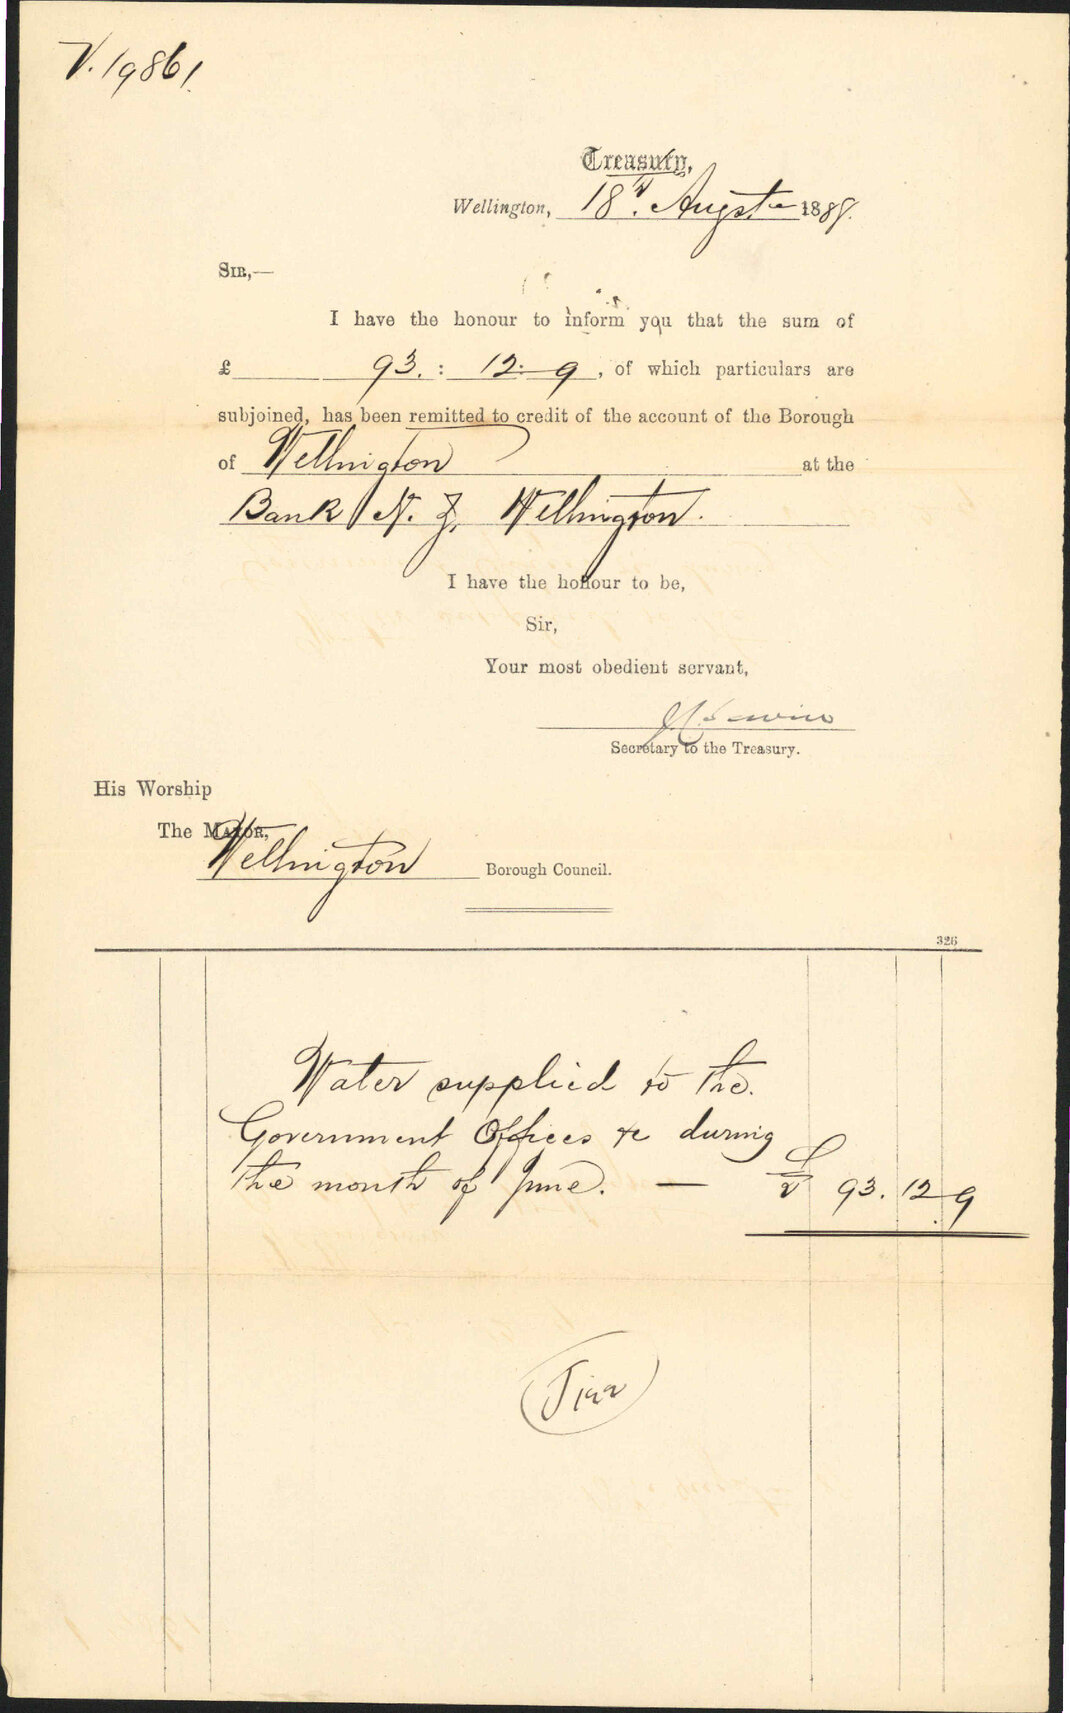 V. 19861.
Treasury,
Wellington, 18th. August 1888.
SIR,—
I have the honour to inform you that the sum of
£ 93. : 12. 9, of which particulars are
subjoined, has been remitted to credit of the account of the Borough
of Wellington at the
Bank N. Z. Wellington.
I have the honour to be,
Sir,
Your most obedient servant,
Secretary to the Treasury.
His Worship
The MAYOR,
Wellington Borough Council.
326
Water supplied to the
Government Offices &c during
the month of June. — £ 93. 12. 9